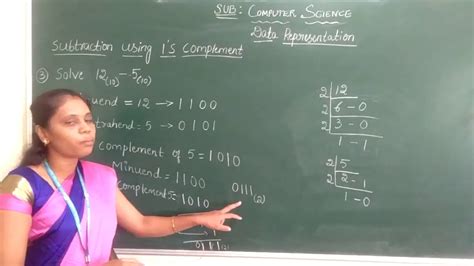 SUB: COMPUTER SCIENCE
Data Representation
Subtraction using 1's Complement
③ Solve 12(10) - 5(10)
nuend = 12 → 1100
trahend = 5 → 0101
complement of 5 = 1010
Minuend = 1100
Complement = 1010
0111(2)
2 12
2 6 - 0
2 3 - 0
1 - 1
2 5
2 2 - 1
1 - 0